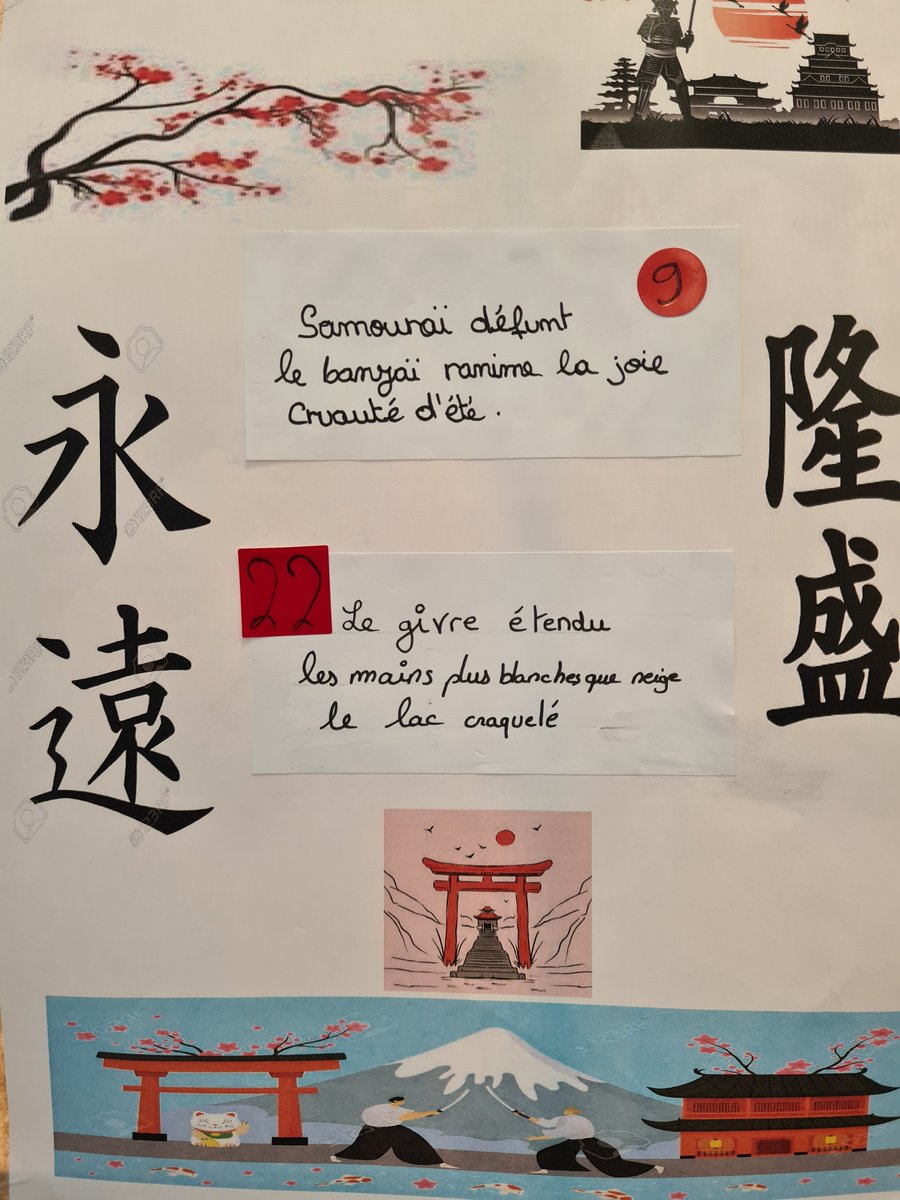 永
遠
隆
盛
9
Samouraï défunt
le banzaï ranime la joie
Cruauté d'été.
22
Le givre étendu
les mains plus blanches que neige
le lac craquelé
123RF